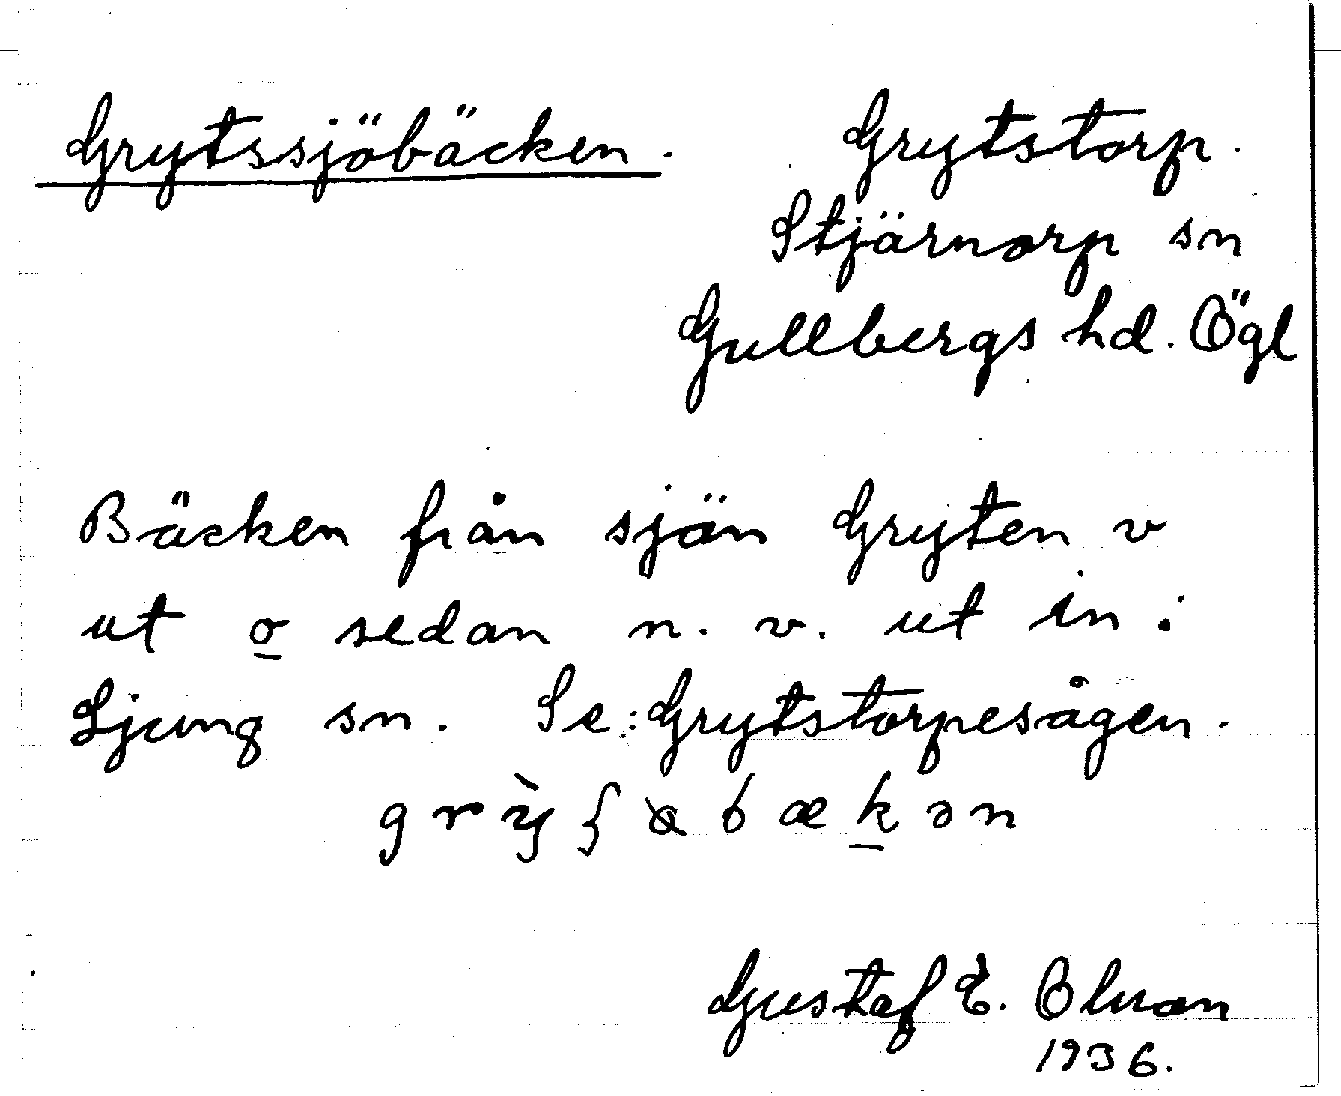 Grytssjöbäcken. Grytstorp.
Stjärnorp sn
Gullbergs hd. Ögl
Bäcken från sjön Gryten v
ut o sedan n. v. ut in i
Ljung sn. Se: Grytstorpesågen.
Gustaf E.
1936.